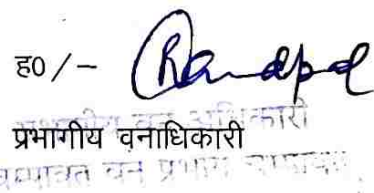 ह0/-
प्रभागीय वन अधिकारी
प्रभागीय वनाधिकारी
चम्पावत वन प्रभाग चम्पावत